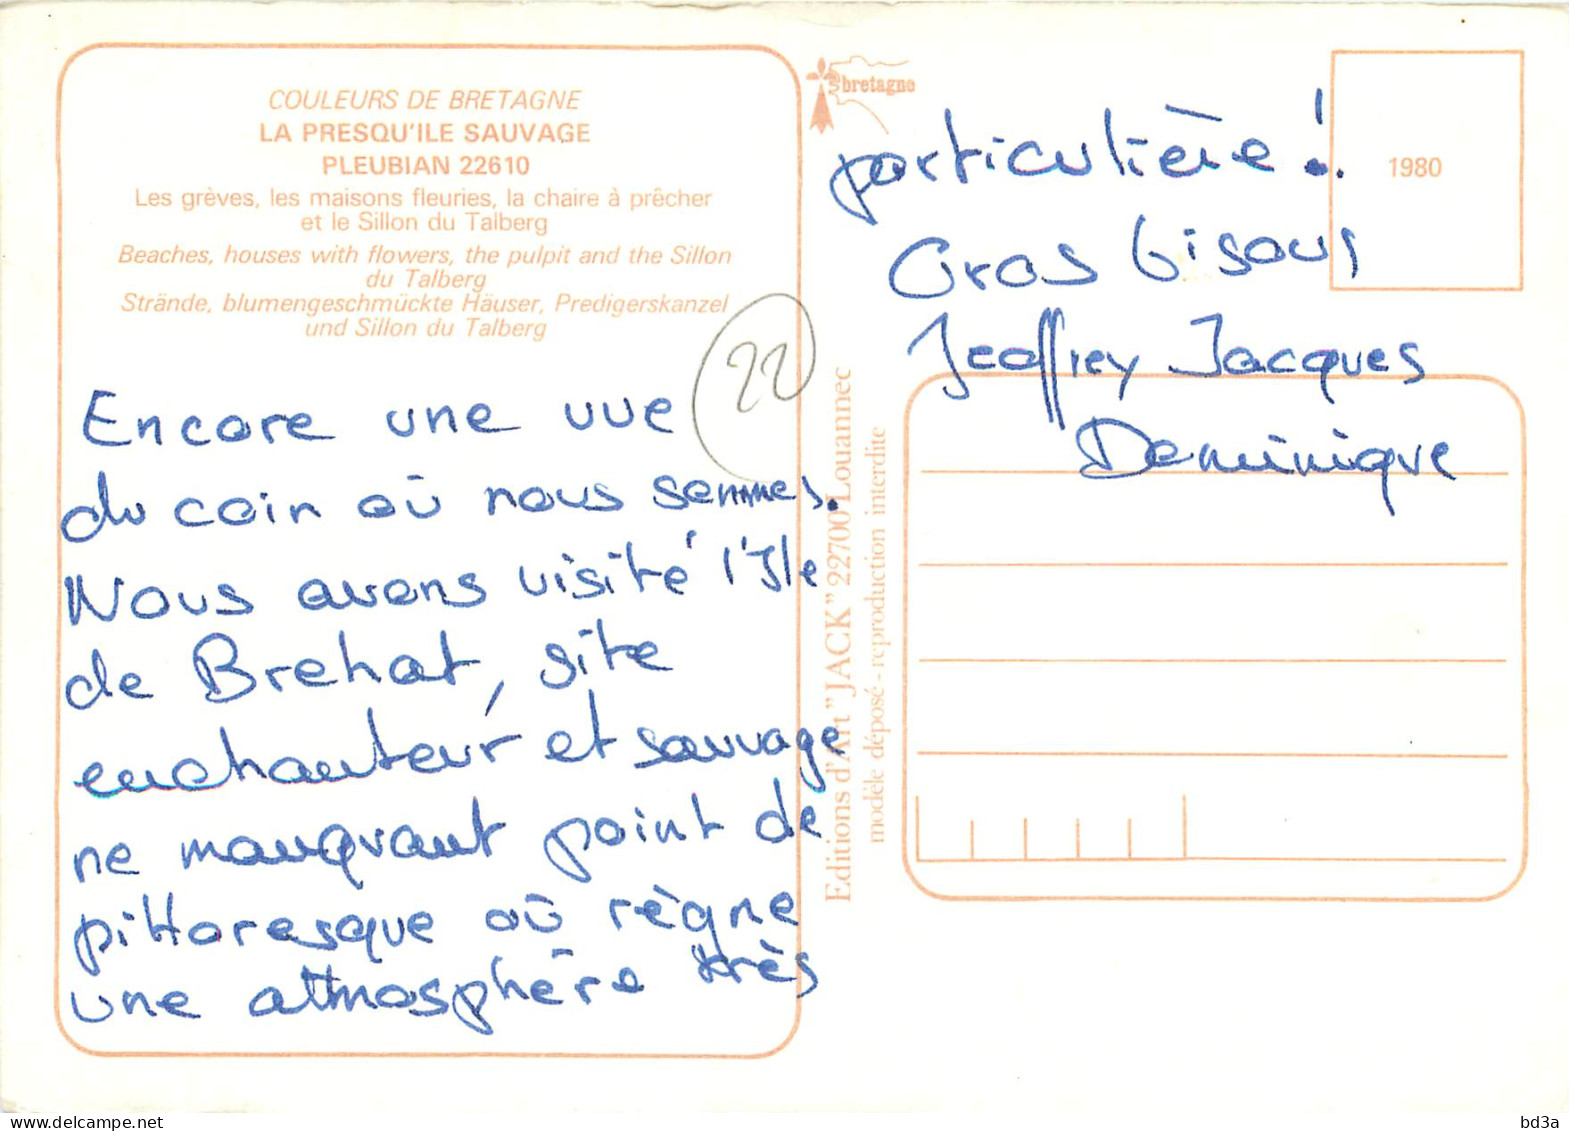 COULEURS DE BRETAGNE
LA PRESQU'ILE SAUVAGE
PLEUBIAN 22610
Les grèves, les maisons fleuries, la chaire à prêcher
et le Sillon du Talberg
Beaches, houses with flowers, the pulpit and the Sillon
du Talberg
Strände, blumengeschmückte Häuser, Predigerskanzel
und Sillon du Talberg
22
Encore une vue
du coin où nous sommes.
Nous avons visité l'Ile
de Brehat, site
enchanteur et sauvage
ne manquant point de
pittoresque où règne
une atmosphère très
Editions d'Art "JACK" 22700 Louannec
modèle déposé - reproduction interdite
bretagne
particulière !
Gros bisous
Jeoffrey Jacques
Dominique
1980
bd3a